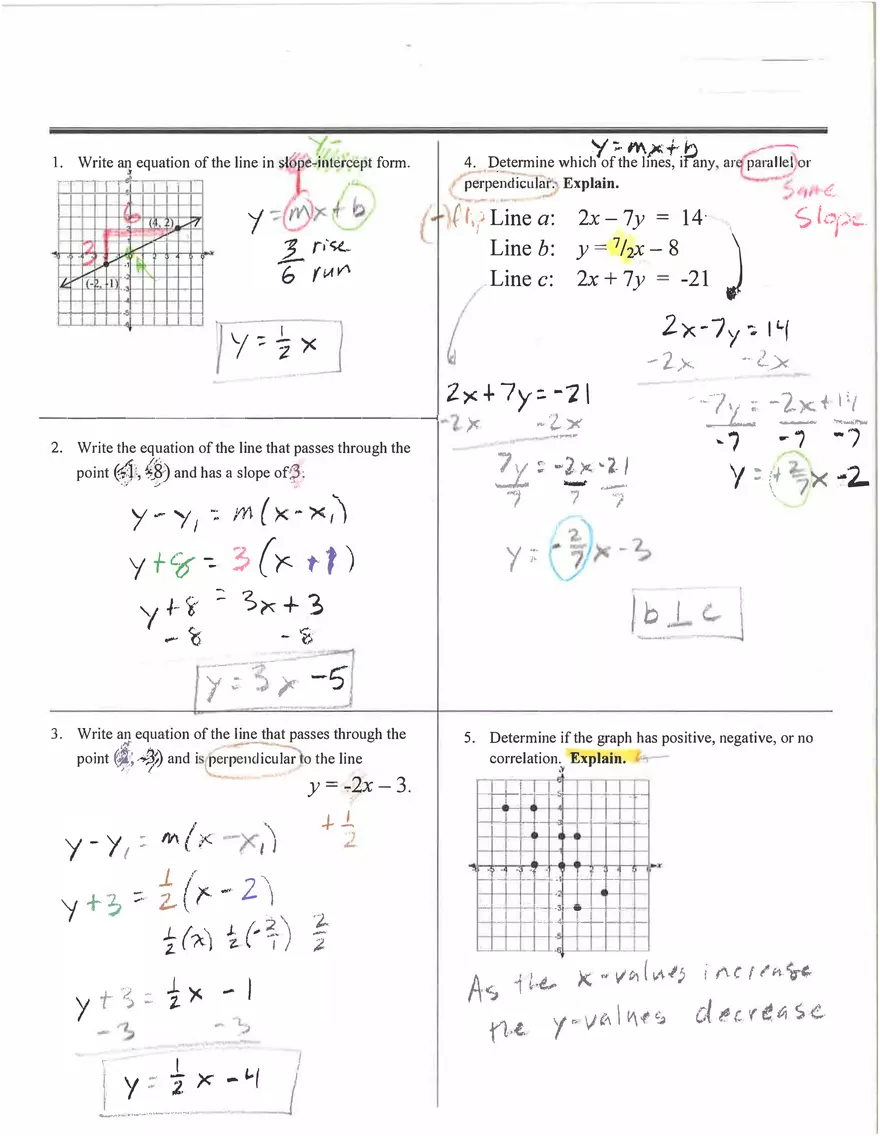 1. Write an equation of the line in slope-intercept form.
(4, 2)
(-2, -1)
6
3
y = mx + b
3 rise
6 run
y = 1/2 x
2. Write the equation of the line that passes through the
point (-1, -8) and has a slope of 3.
y - y₁ = m(x - x₁)
y + 8 = 3(x + 1)
y + 8 = 3x + 3
- 8 - 8
y = 3x - 5
3. Write an equation of the line that passes through the
point (2, -3) and is perpendicular to the line
y = -2x – 3.
+ 1/2
y - y₁ = m(x - x₁)
y + 3 = 1/2 (x - 2)
1/2 (x) 1/2 (-2/1) 2/2
y + 3 = 1/2 x - 1
- 3 - 3
y = 1/2 x - 4
y = mx + b
4. Determine which of the lines, if any, are parallel or
perpendicular. Explain.
same
slope
(-) flip
Line a: 2x – 7y = 14
Line b: y = 7/2x – 8
Line c: 2x + 7y = -21
2x - 7y = 14
-2x -2x
-7y = -2x + 14
-7 -7 -7
y = + 2/7 x - 2
2x + 7y = -21
-2x -2x
7y = -2x - 21
7 7 7
y = - 2/7 x - 3
b ⊥ c
5. Determine if the graph has positive, negative, or no
correlation. Explain.
As the x-values increase
the y-values decrease